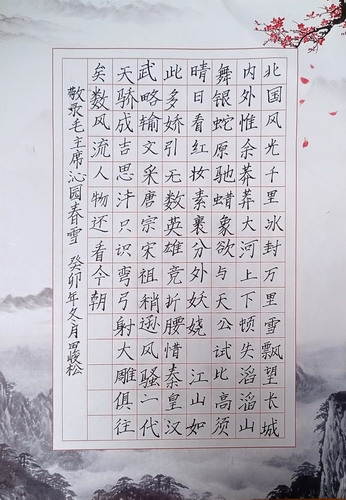 北国风光千里冰封万里雪飘望长城
内外惟余莽莽大河上下顿失滔滔山
舞银蛇原驰蜡象欲与天公试比高须
晴日看红妆素裹分外妖娆 江山如
此多娇引无数英雄竞折腰惜秦皇汉
武略输文采唐宗宋祖稍逊风骚一代
天骄成吉思汗只识弯弓射大雕俱往
矣数风流人物还看今朝
敬录毛主席沁园春雪 癸卯年冬月田峻松